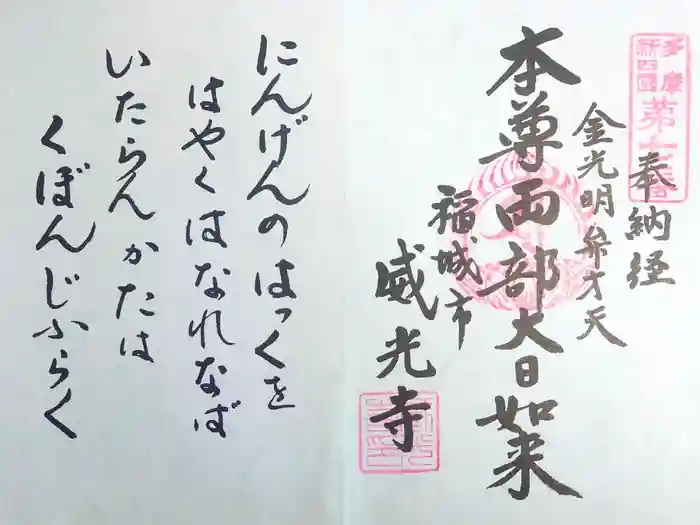 多摩
新四國
奉納経
金光明弁才天
本尊両部大日如来
稲城市
威光寺
にんげんのはっくを
はやくはなれなば
いたらんかたは
くぼんじふらく